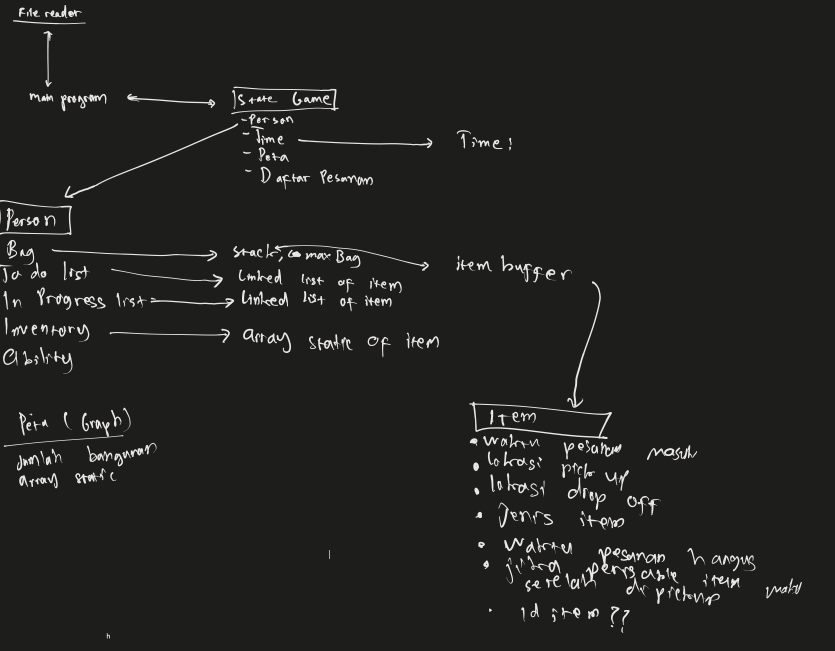 File reader
main program
State Game
- Person
- Time
- Peta
- Daftar Pesanan
Time!
Person
Bag
To do list
In Progress list
Inventory
Ability
stack, max Bag
Linked list of item
Linked list of item
array static of item
item buffer
Peta (Graph)
Jumlah bangunan
array static
Item
• waktu pesanan masuk
• lokasi pick up
• lokasi drop off
• Jenis item
• Waktu pesanan hangus
• jika perisable item
setelah di pickup
• id item ??